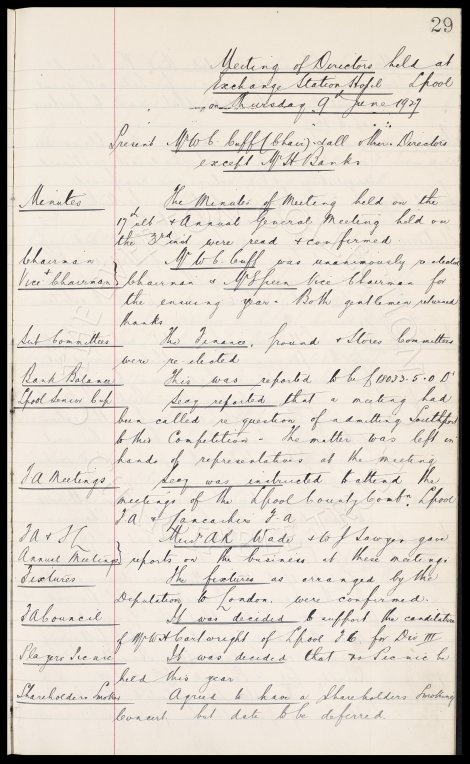 29
Meeting of Directors held at
Exchange Station Hotel Lpool
on Thursday 9th June 1927
Present Mr W C Cuff (Chair) & all other Directors
except Mr H Banks
Minutes The Minutes of Meeting held on the
17th ult & Annual General Meeting held on
the 3rd inst were read & confirmed.
Chairman Mr W C Cuff was unanimously re elected
Vice + Chairman } Chairman & Mr Green Vice Chairman for
the ensuing year. Both gentlemen returned
thanks
Sub Committees The Finance, Ground & Stores Committees
were re-elected
Bank Balance This was reported to be £18033.5.0 Dr
Lpool Senior Cup Secy reported that a meeting had
been called re question of admitting Southport
to this Competition - The matter was left in
hands of representatives at the meeting
FA Meetings Secy was instructed to attend the
meetings of the Lpool County Combn, Lpool
F.A & Lancashire F.A
FA & FL Messrs A R Wade & W J Sawyer gave
Annual Meetings } reports on the business at these meetings
Fixtures The fixtures as arranged by the
Deputation to London were confirmed.
FA Council It was decided to support the candidature
of Mr W H Cartwright of Lpool FC for Div III
Players Picnic It was decided that no Picnic be
held this year
Shareholders Smoker Agreed to have a Shareholders Smoking
Concert but date to be deferred.